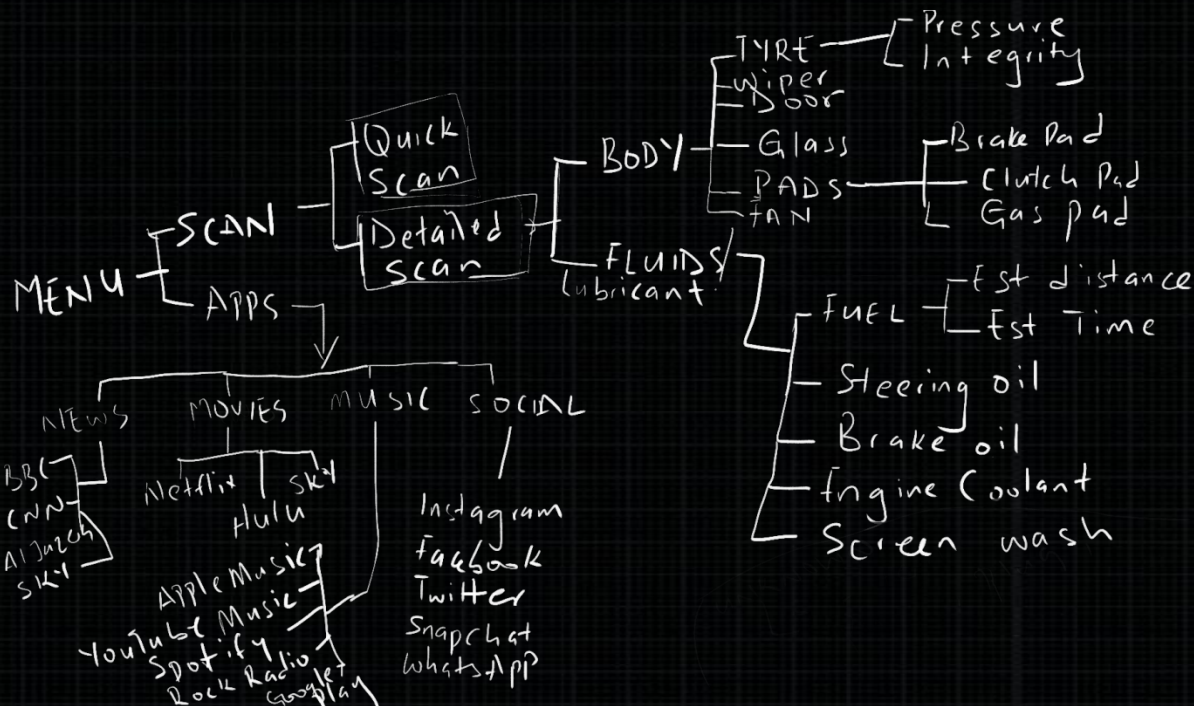 MENU
SCAN
APPS
Quick
Scan
Detailed
Scan
BODY
FLUIDS/
Lubricant
TYRE
Wiper
Door
Glass
PADS
FAN
Pressure
Integrity
Brake Pad
Clutch Pad
Gas pad
FUEL
Est distance
Est Time
Steering oil
Brake oil
Engine Coolant
Screen wash
NEWS
MOVIES
MUSIC
SOCIAL
BBC
CNN
SKY
Netflix
Hulu
SKY
Apple Music
YouTube Music
Spotify
Rock Radio
Google+
Play
Instagram
Facebook
Twitter
Snapchat
WhatsApp